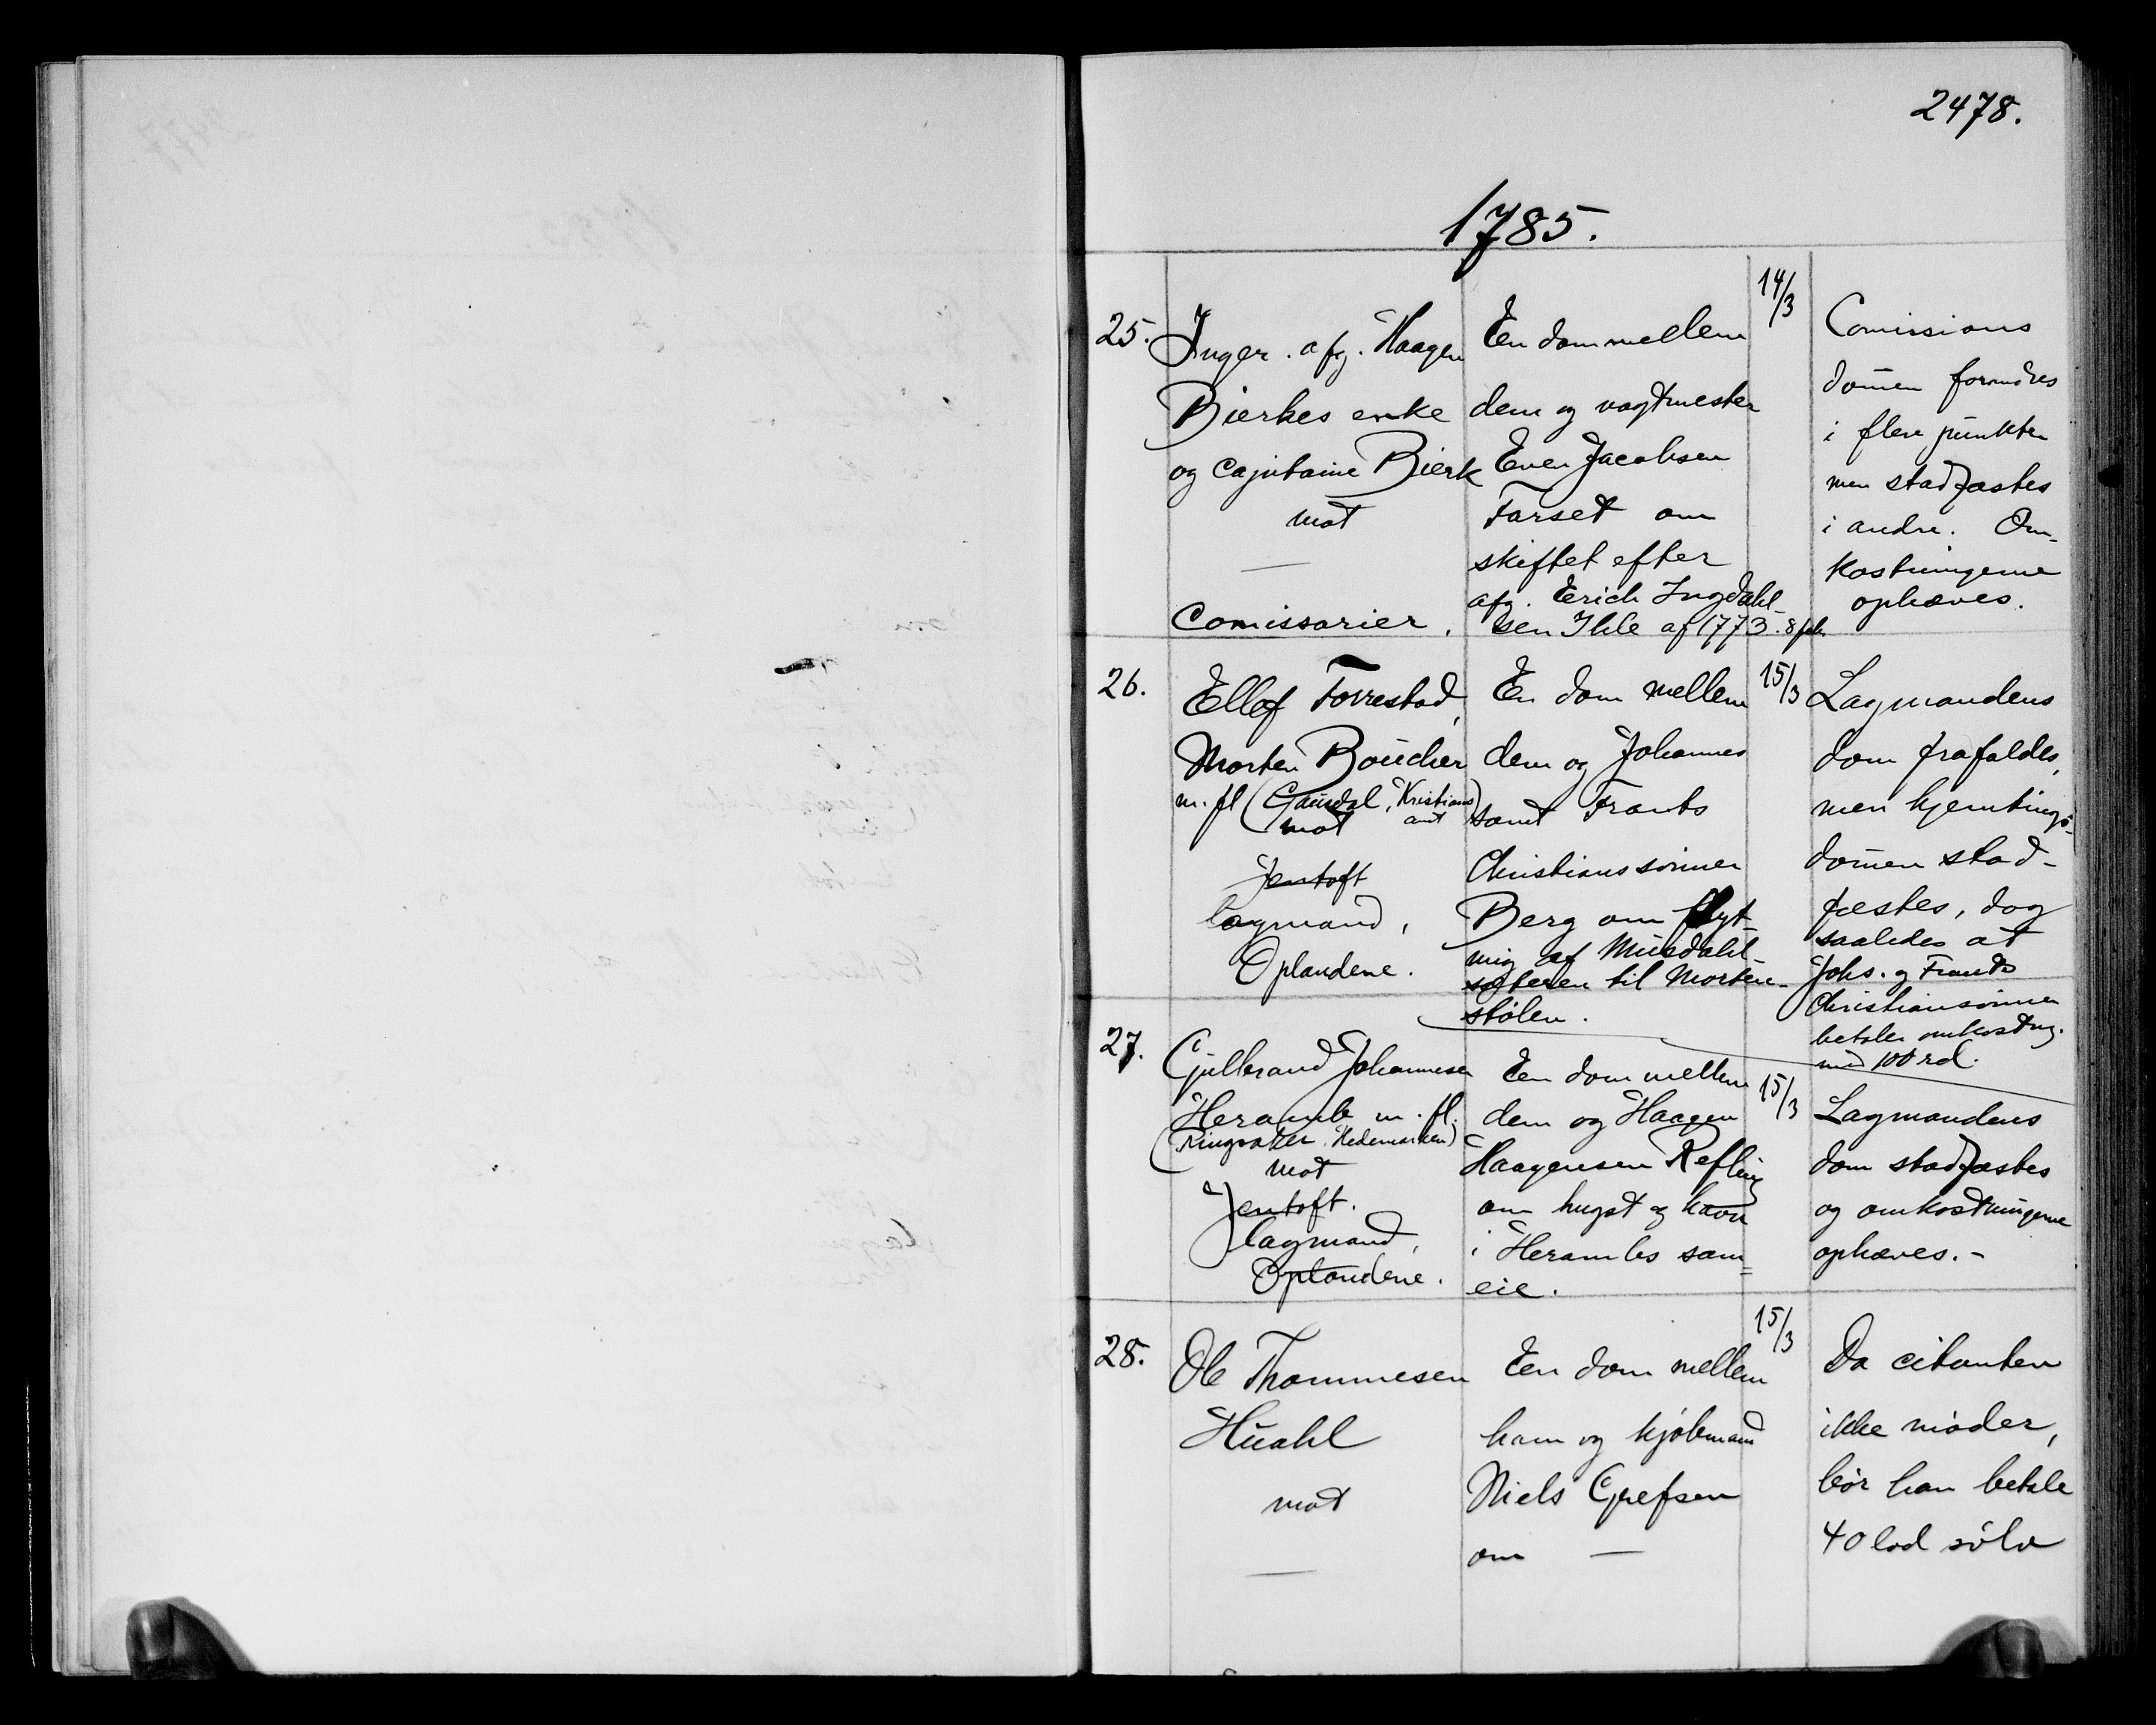 2478.
1785.
25.
Inger. afg. Haagen
Bierkes enke
og Capitaine Bierk
mot
—
Comissarier.
En dom mellem
dem og vagtmester
Even Jacobsen
Farset om
skiftet efter
afg. Erich Ingdahl-
sen Ihle af 1773. 8 feb.
14/3
Comissions
domen forandres
i flere punkter
men stadfæstes
i andre. Om-
kostningerne
ophæves.
26.
Ellef Forrestad,
Morten Boucher
m. fl (Gausdal, Kristians
amt)
mot
Jentoft
lagmand,
Oplandene.
En dom mellem
dem og Johannes
samt Frants
Christianssønner
Berg om flyt-
ning af Musdahl-
sæteren til Morten-
stølen.
15/3
Lagmandens
dom frafaldes,
men hjemtings-
domen stad-
fæstes, dog
saaledes at
Johs. og Frants
Christiansønner
betaler omkostng.
med 100 rd.
27.
Gulbrand Johannesen
Heramb m. fl.
(Ringsaker, Hedemarken)
mot
Jentoft.
lagmand,
Oplandene.
En dom mellem
dem og Haagen
Haagensen Refling
om hugst og havn
i Herambs sam=
eie.
15/3
Lagmandens
dom stadfæstes
og omkostningerne
ophæves.-
28.
Ole Thommesen
Huahl
mot
—
En dom mellem
ham og kjøbmand
Niels Grefsen
om —
15/3
Da citanten
ikke møder,
bør han betale
40 lod sølv